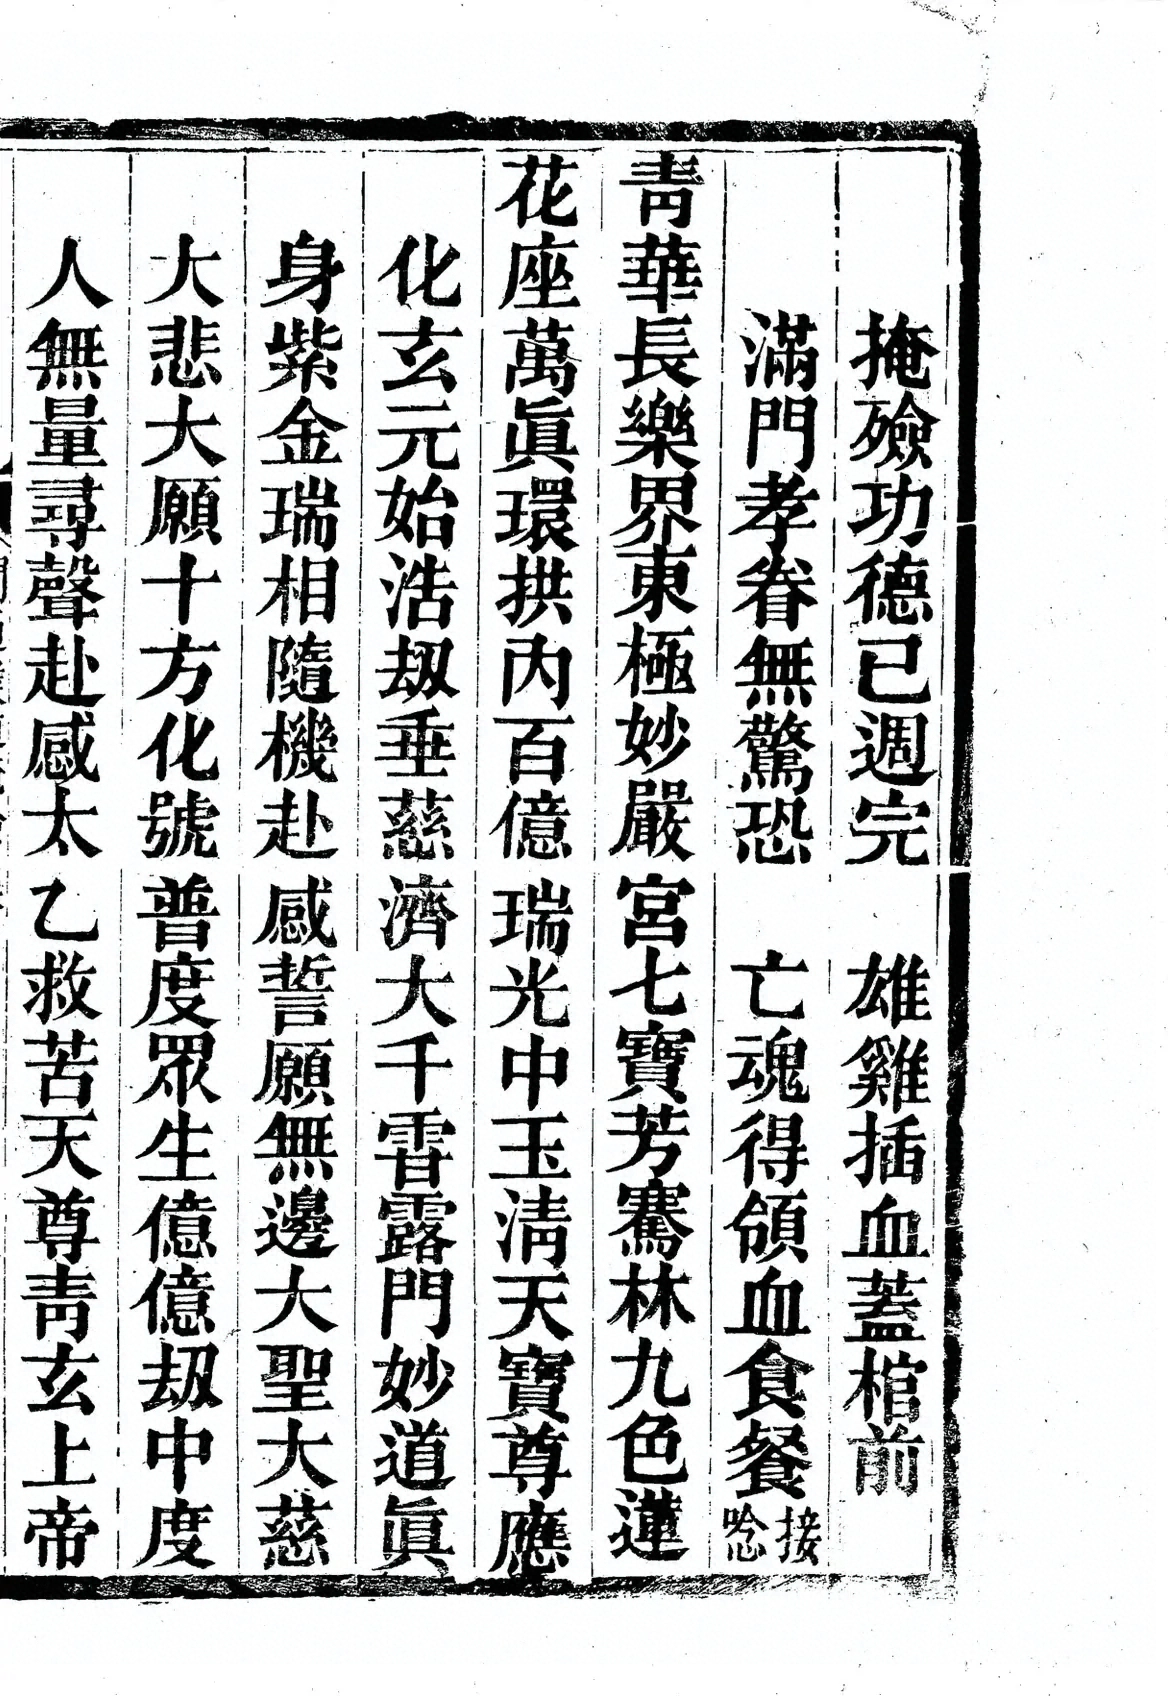 掩殮功德已週完　雄雞插血蓋棺前
滿門孝眷無驚恐　亡魂得領血食餐接唸
青華長樂界東極妙嚴宮七寶芳騫林九色蓮
花座萬眞環拱內百億瑞光中玉淸天寶尊應
化玄元始浩刼垂慈濟大千甘露門妙道眞
身紫金瑞相隨機赴感誓願無邊大聖大慈
大悲大願十方化號普度眾生億億刼中度
人無量尋聲赴感太乙救苦天尊靑玄上帝